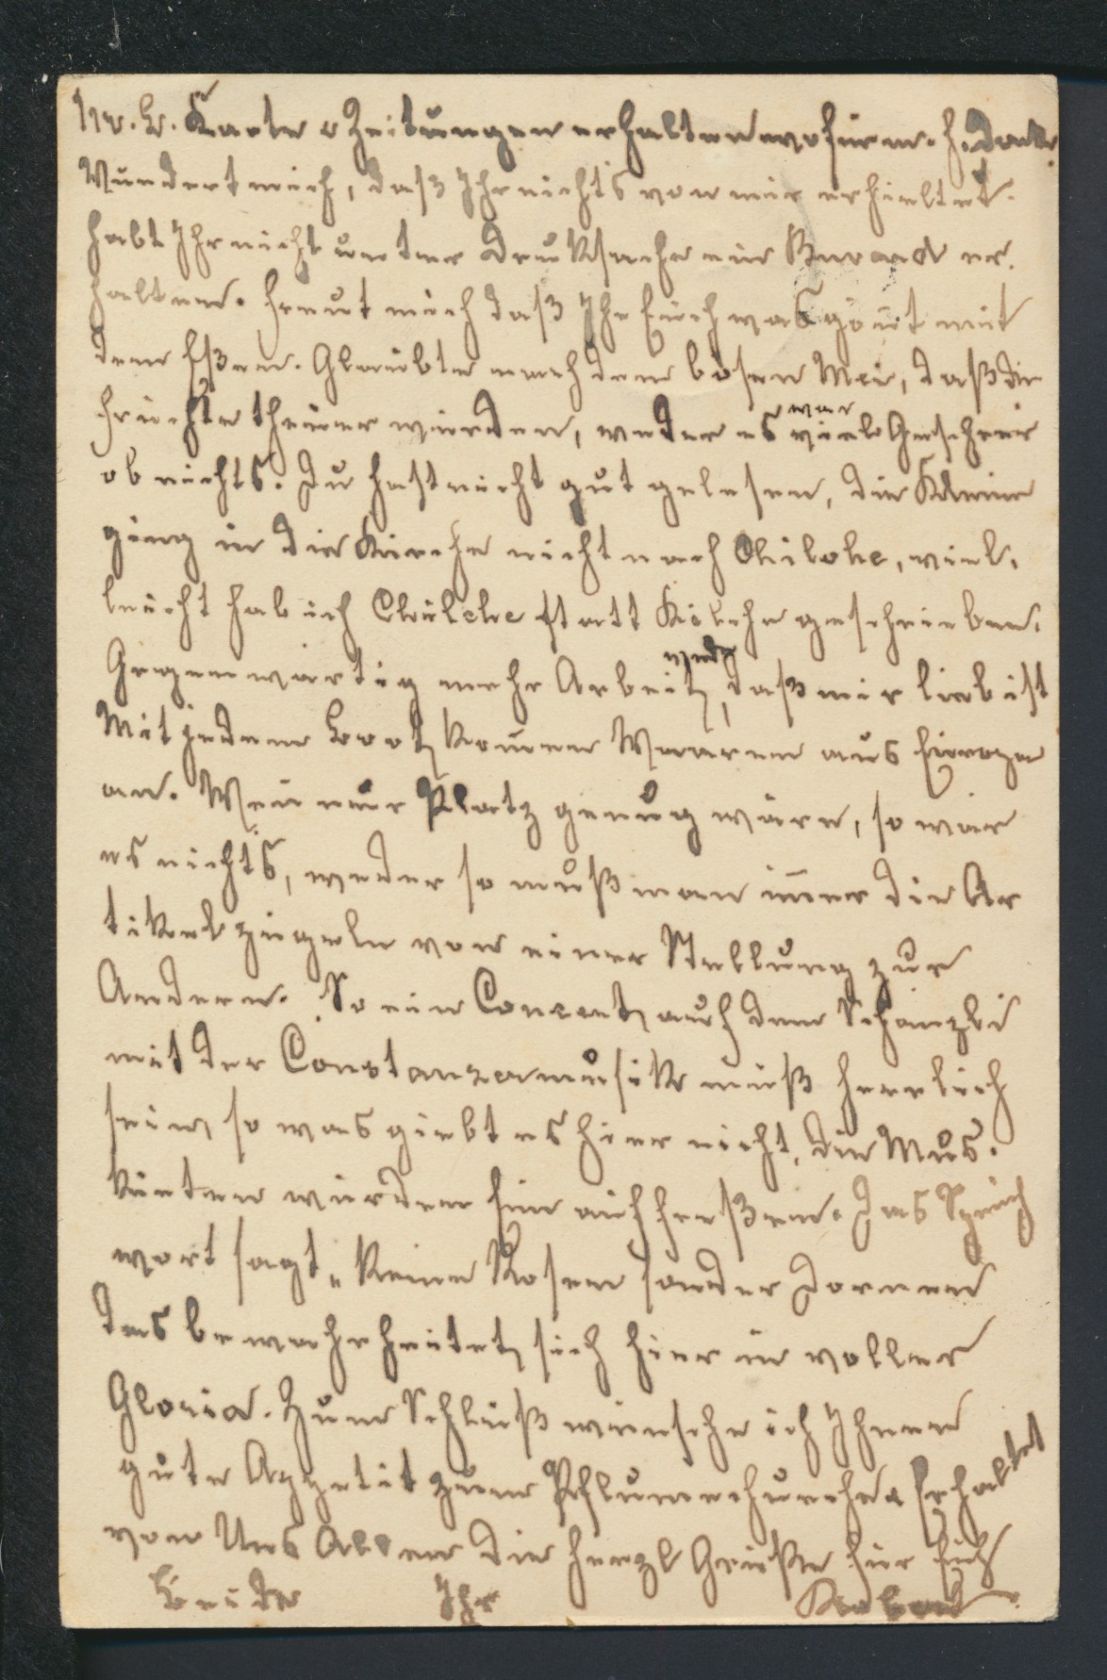 W. L. Karte & Zeitungen erhalten wofür m. h. Dank.
Wundert mich, daß Ihr nichts von mir erhieltet.
Habt Ihr nicht unter Druksache ein er.
halten. Freut mich daß Ihr Euch was gönt mit
dem Eßen. Glaubte nach dem bösen Mai, daß die
Früchte theurer würden, weder es war viele Geschrei
ob nichts. Du hast nicht gut gelesen, die Kleine
ging in die Kirche nicht nach Chilche, viel.
leicht hab ich Chilche statt Kilche geschrieben.
Gegenwärtig mehr Arbeit, daß mir lieb ist
Mit jedem Boot komen Waaren aus Europa
an. Wen nur Platz genug wäre, so wär
es nichts, weder so muß man imer die Ar
tikel zügeln von einer Stellung zur
Andern. So ein Concert auf dem Schänzli
mit der Constanzermusik muß herrlich
sein, so was giebt es hier nicht, die Mus.
kiten würden Ein auffreßen. Das Sprich
wort sagt „Keine Rosen sonder Dornen
das bewahrheitet sich hier in voller
Gloria. Zum Schluß wünsche ich Ihnen
gute Appetit zum Pflumechueche & Erhaltet
von Uns Allen die herzl Grüße für Euch
Beide Ihr